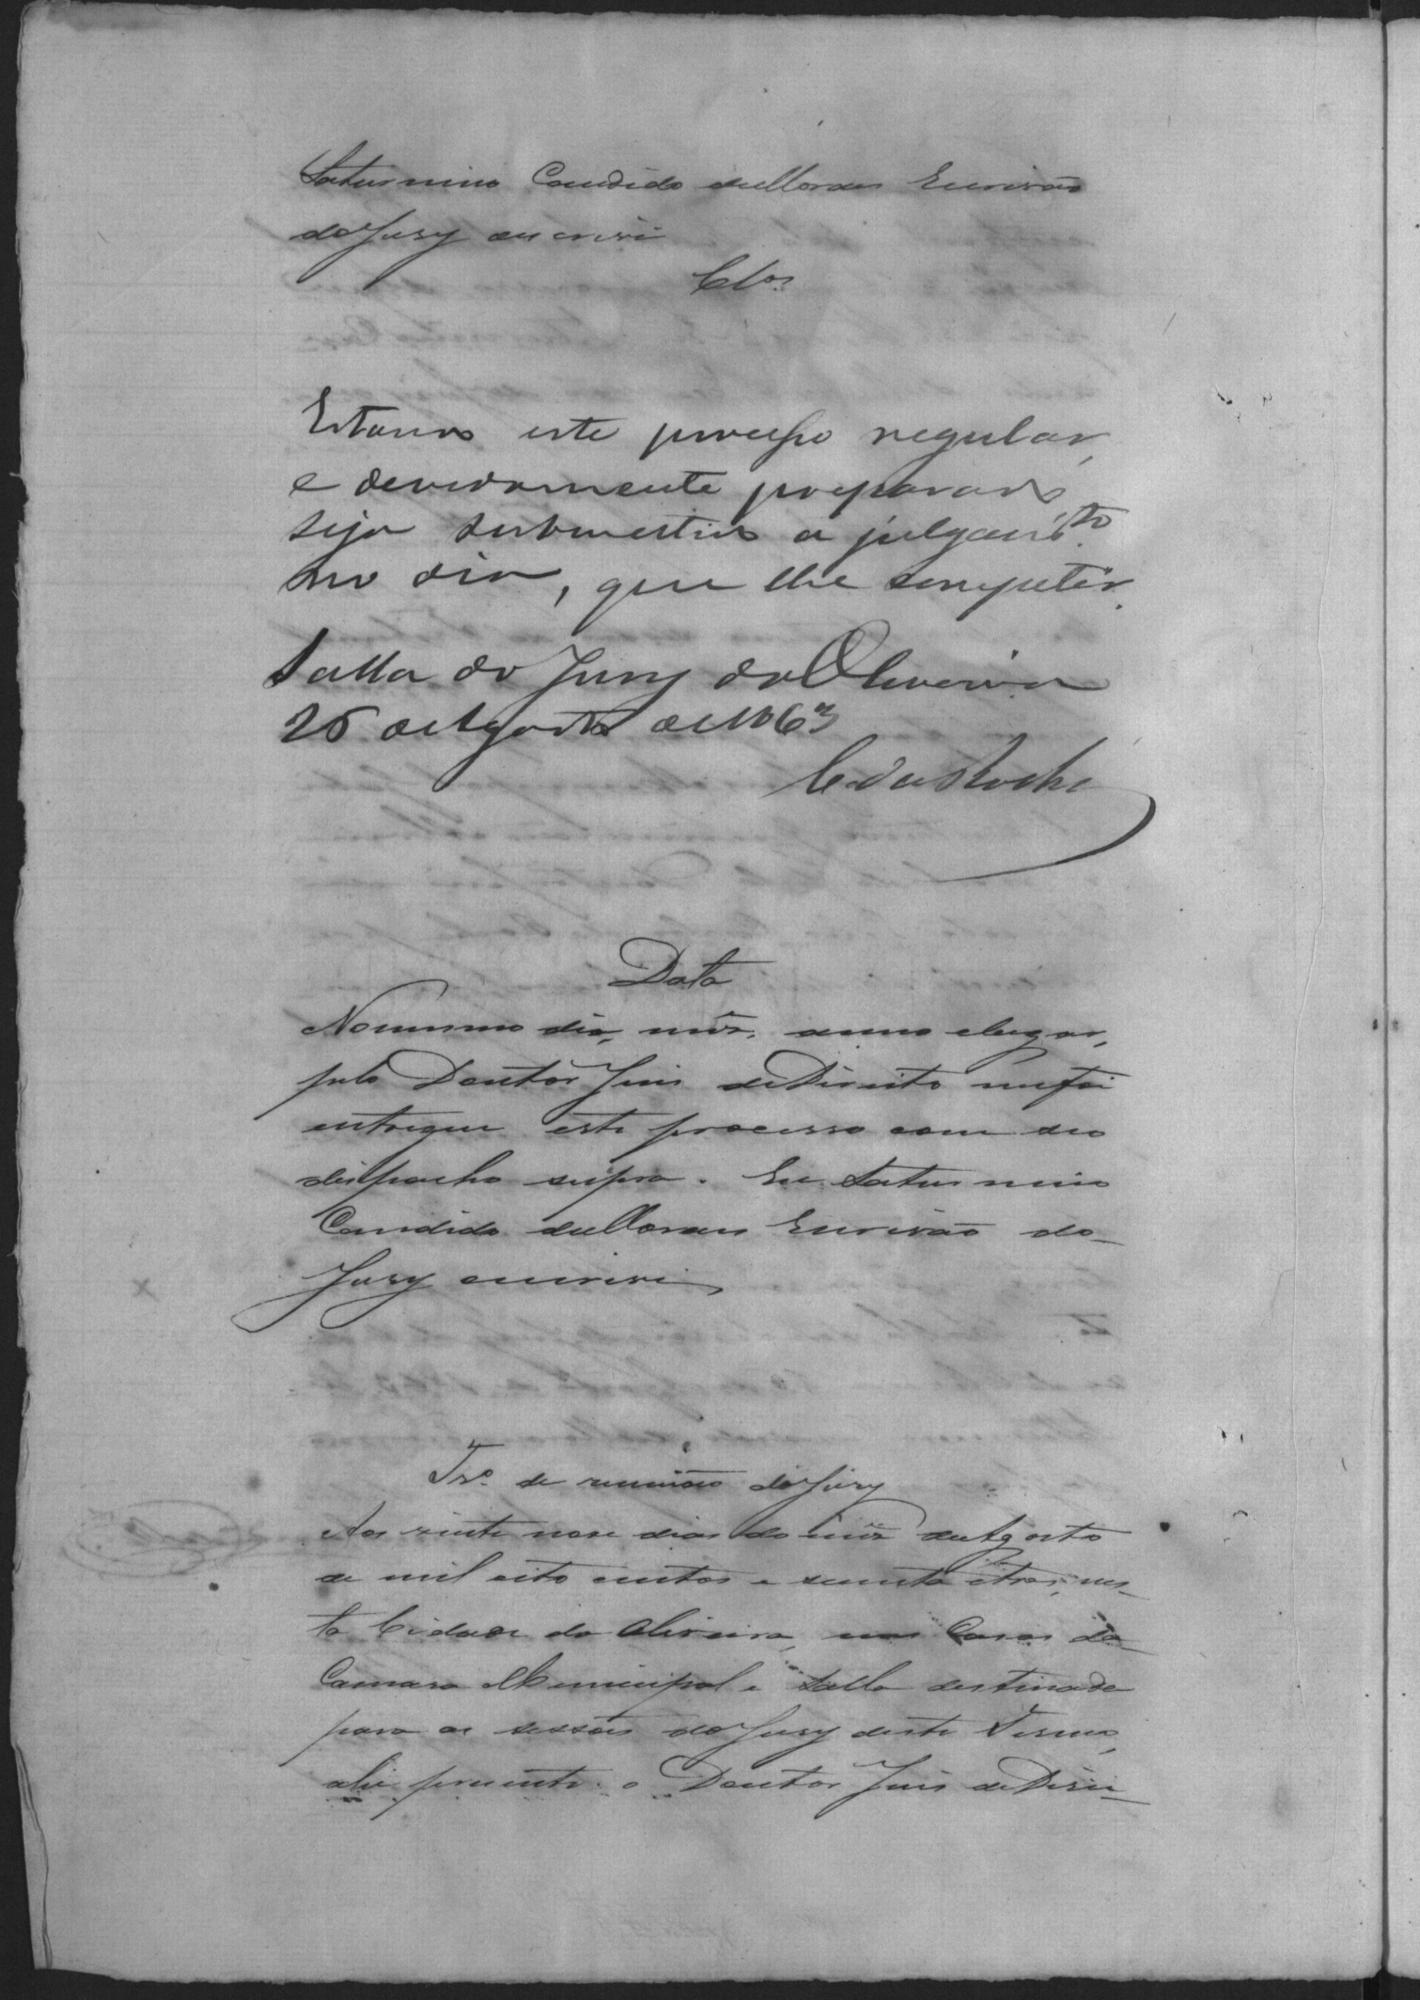 Saturnino Candido de Moraes Escrivão
do Jury escrevi
Clos
Estando este processo regular,
e devidamente preparado
seja submettido a julgam.to
no dia, que lhe competir.
Salla do Jury da Oliveira
26 de Agosto de 1863
C. da Rocha
Data
No mesmo dia, mês, anno e lugar,
pelo Doutor Juis de Direito me foi
entregue este processo com seo
despacho supra. Eu Saturnino
Candido de Moraes Escrivão do
Jury escrevi
Tr.º de reunião do Jury
Aos vinte nove dias do mês de Agosto
de mil oito centos e secenta e tres, nes-
ta Cidade da Oliveira, nas Casas da
Camara Municipal e salla destinada
para as sessões do Jury deste Termo,
ahi presente o Doutor Juis de Direi-